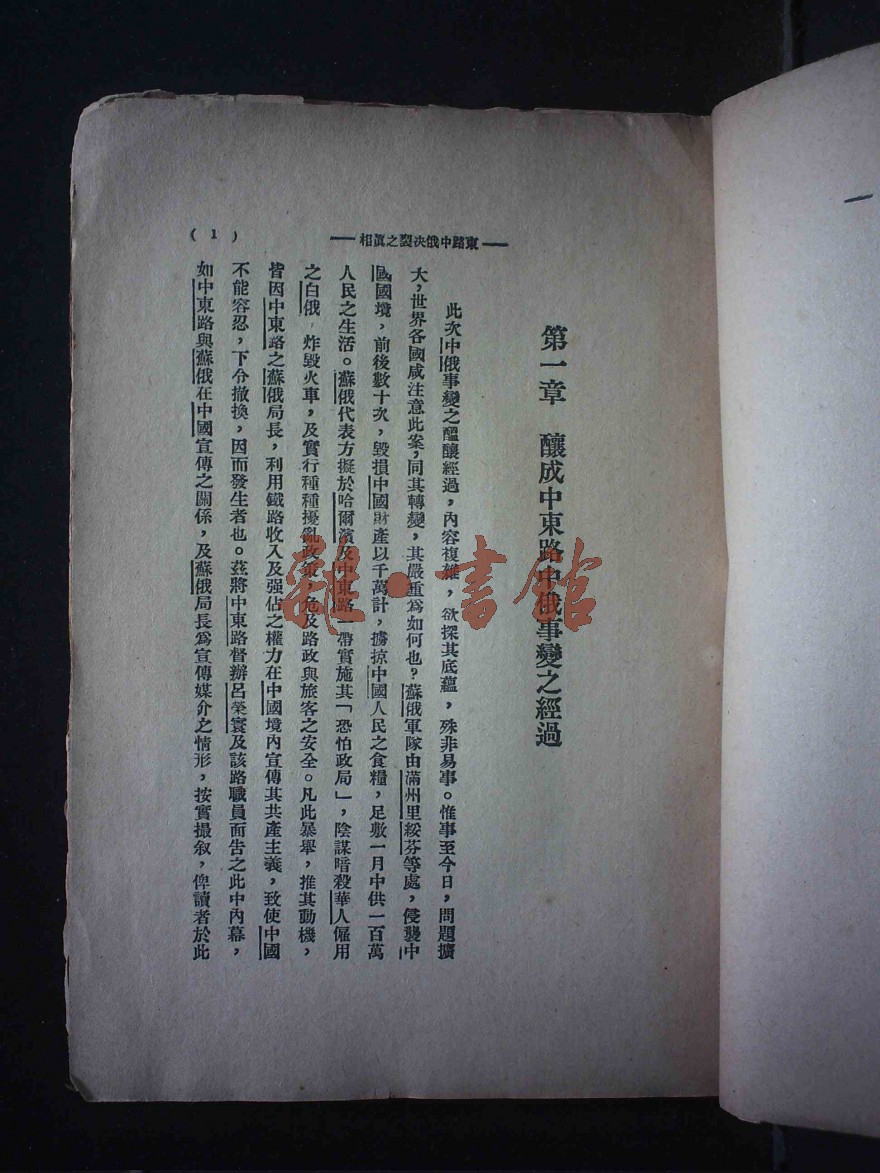 東路中俄決裂之眞相
( 1 )
第一章 釀成中東路中俄事變之經過
此次中俄事變之醞釀經過，內容複雜，欲探其底蘊，殊非易事。惟事至今日，問題擴
大，世界各國咸注意此案，同其轉變，其嚴重爲如何也？蘇俄軍隊由滿州里綏芬等處，侵襲中
國國境，前後數十次，毀損中國財產以千萬計，擄掠中國人民之食糧，足敷一月中供一百萬
人民之生活。蘇俄代表方擬於哈爾濱及中東路一帶實施其「恐怕政局」，陰謀暗殺華人僱用
之白俄，炸毀火車，及實行種種擾亂政策，危及路政與旅客之安全。凡此暴舉，推其動機，
皆因中東路之蘇俄局長，利用鐵路收入及强佔之權力在中國境內宣傳其共產主義，致使中國
不能容忍，下令撤換，因而發生者也。茲將中東路督辦呂榮寰及該路職員面告之此中內幕，
如中東路與蘇俄在中國宣傳之關係，及蘇俄局長爲宣傳媒介之情形，按實撮叙，俾讀者於此
雜·書館